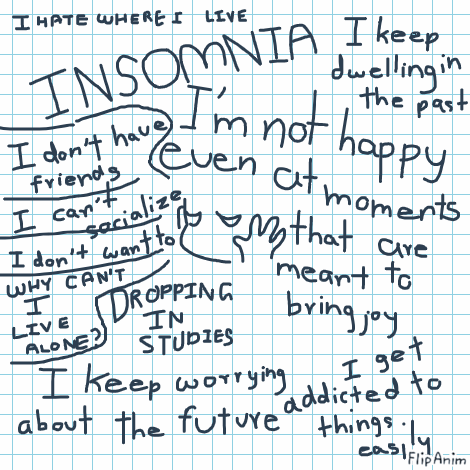 I HATE WHERE I LIVE
INSOMNIA
I keep
dwelling in
the past
I'm not happy
even at moments
that are
meant to
bring joy
I don't have
friends
I can't
socialize
I don't want to
WHY CAN'T
I
LIVE
ALONE?
DROPPING
IN
STUDIES
I keep worrying
about the future
I get
addicted to
things
easily
FlipAnim